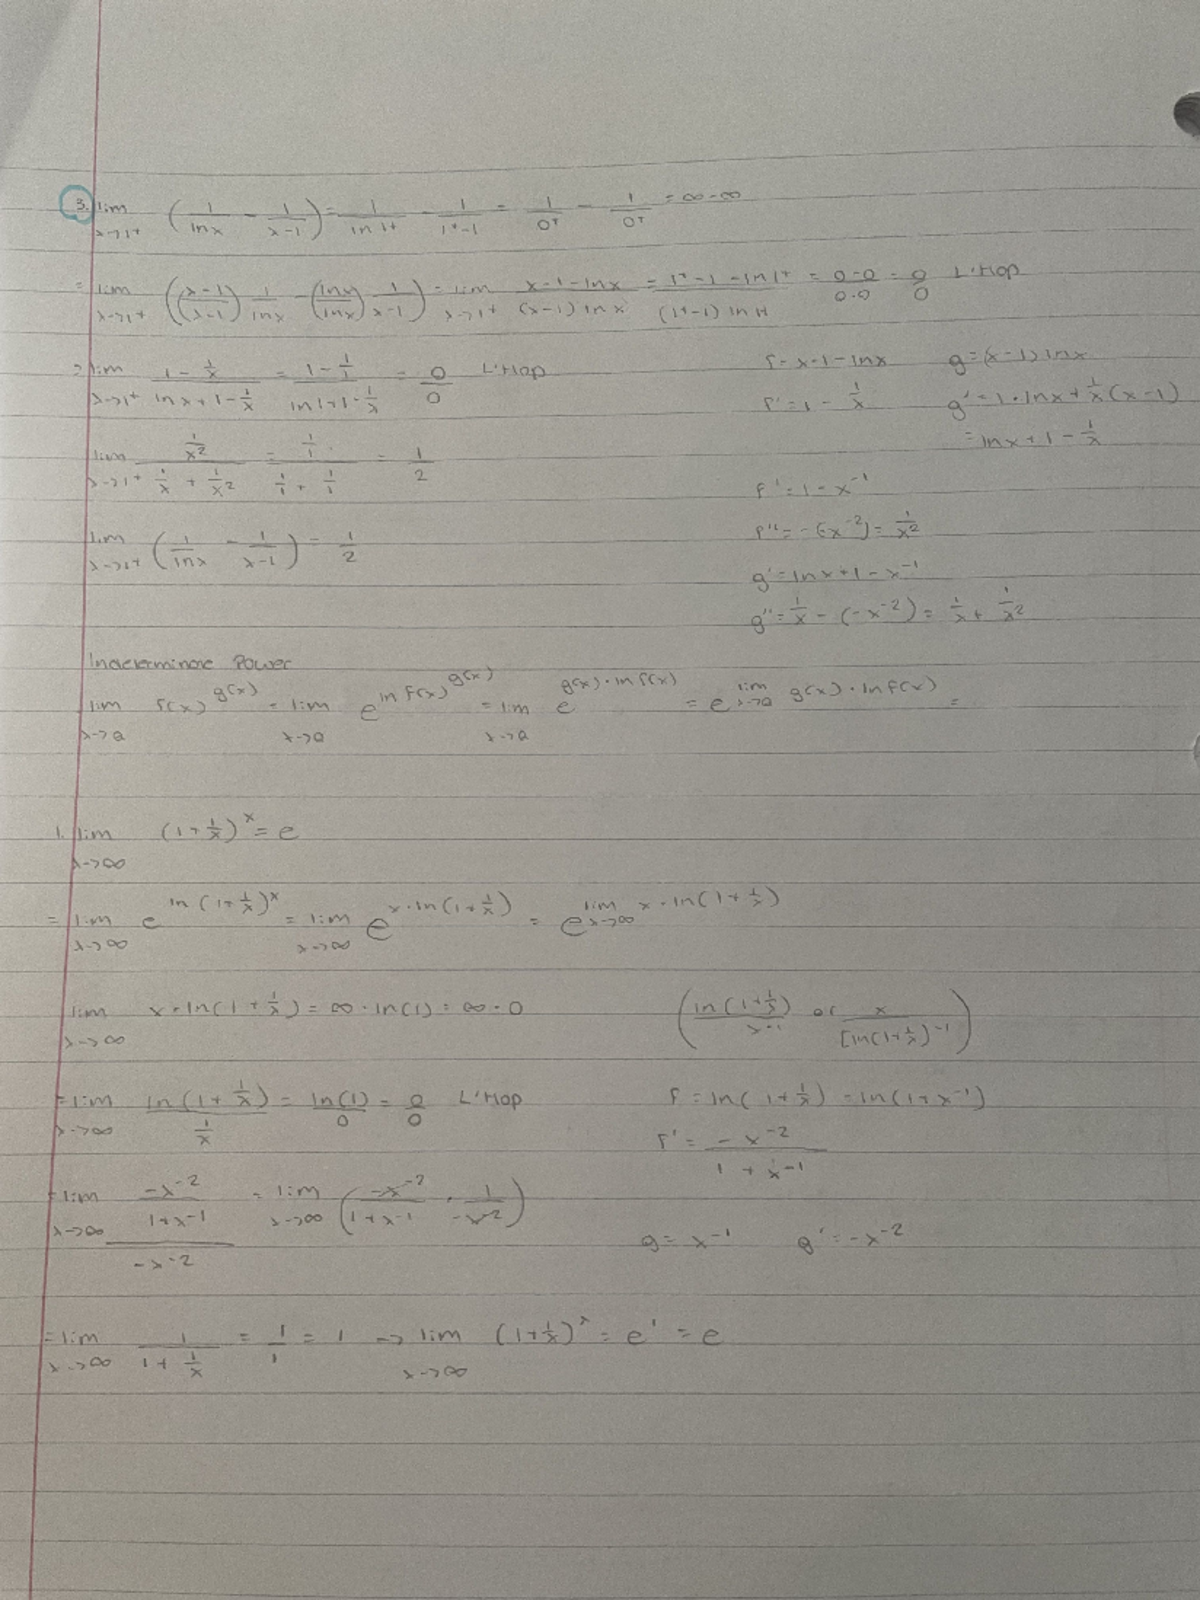 3. lim x->1+ (1/lnx - 1/x-1) = 1/ln 1+ - 1/1+-1 = 1/0+ - 1/0+ = ∞-∞
= lim x->1+ ((x-1/x-1) 1/lnx - (lnx/lnx) 1/x-1) = lim x->1+ x-1-lnx/(x-1) lnx = 1+-1-ln1+/(1+-1) ln 1+ = 0-0/0·0 = 0/0 L'Hop
= lim x->1+ 1 - 1/x / lnx+1-1/x = 1-1/1 / ln1+1-1/x = 0/0 L'Hop
f = x-1-lnx g=(x-1)lnx
f' = 1 - 1/x g' = 1·lnx+1/x(x-1)
= lnx+1-1/x
lim x->1+ 1/x² / 1/x + 1/x² = 1/1 / 1/1 + 1/1 = 1/2
f' = 1-x⁻¹
f'' = -(-x⁻²) = 1/x²
lim x->1+ (1/lnx - 1/x-1) = 1/2
g' = lnx+1-x⁻¹
g'' = 1/x - (-x⁻²) = 1/x + 1/x²
Indeterminate Power
lim x->a f(x)^g(x) = lim x->a e^ln f(x)^g(x) = lim x->a e^g(x)·ln f(x) = e^lim x->a g(x)·ln f(x) =
1. lim x->∞ (1+1/x)^x = e
= lim x->∞ e^ln(1+1/x)^x = lim x->∞ e^x·ln(1+1/x) = e^lim x->∞ x·ln(1+1/x)
lim x->∞ x·ln(1+1/x) = ∞·ln(1) = ∞·0 (ln(1+1/x)/x⁻¹ or x/[ln(1+1/x)⁻¹)
= lim x->∞ ln(1+1/x) / 1/x = ln(1)/0 = 0/0 L'Hop
f = ln(1+1/x) = ln(1+x⁻¹)
f' = -x⁻²/1+x⁻¹
= lim x->∞ -x⁻²/1+x⁻¹ / -x⁻² = lim x->∞ (-x⁻²/1+x⁻¹ · 1/-x⁻²)
g = x⁻¹ g' = -x⁻²
= lim x->∞ 1/1+1/x = 1/1 = 1 -> lim x->∞ (1+1/x)^x = e¹ = e